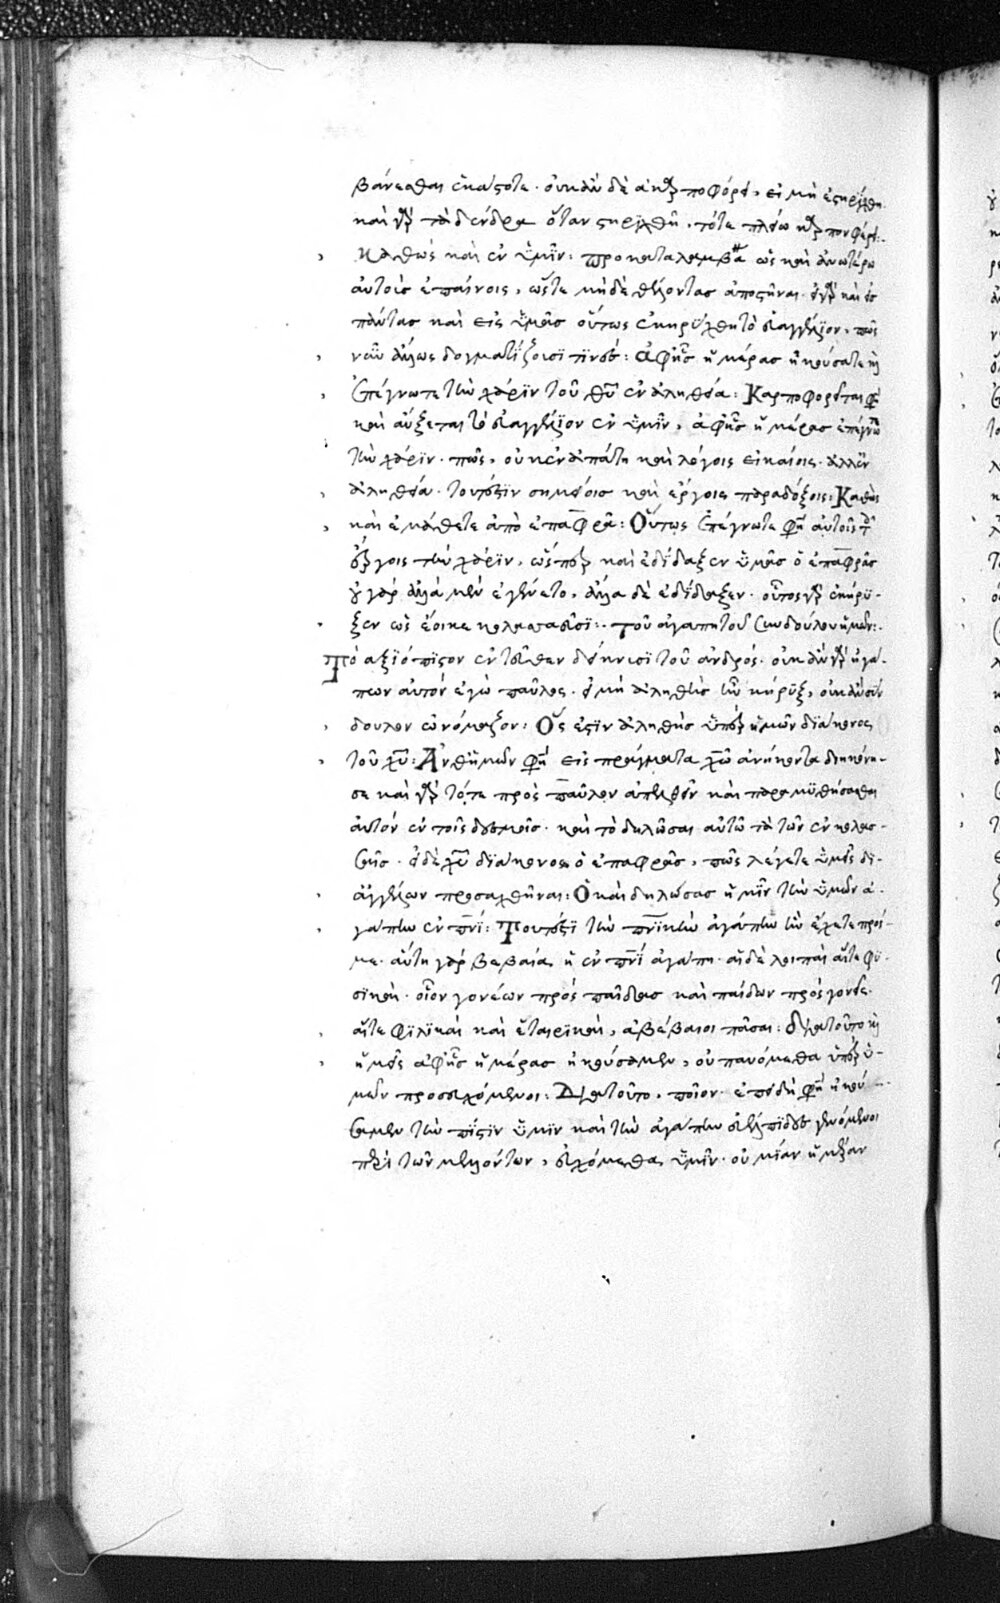 βάνεσθαι ἑκάστοτε· οὐκ ἂν δὲ καρποφόρει, εἰ μὴ ἐστηρίχθη
καὶ γὰρ τὰ δένδρα ὅταν στηριχθῆ, τότε πλείω καρπὸν φέρει:
Καθὼς καὶ ἐν ὑμῖν: προκαταλαμβ ὡς καὶ ἀνωτέρω
αὐτοὺς ἐπαίνοις, ὥστε μηδὲ θέλοντας ἀποστῆναι· εἰ γὰρ καὶ εἰς
πάντας καὶ εἰς ὑμᾶς οὕτως ἐκηρύχθη τὸ εὐαγγέλιον, πῶς
νῦν ἄλλως δογματίζουσί τινες: ἀφ' ἧς ἡμέρας ἠκούσατε καὶ
ἐπέγνωτε τὴν χάριν τοῦ θυ ἐν ἀληθεία: Καρποφορεῖται φη
καὶ αὔξεται τὸ εὐαγγέλιον ἐν ὑμῖν, ἀφ' ἧς ἡμέρας ἐπέγνωτε
τὴν χάριν· πῶς, οὐκ ἐν ἀπάτη καὶ λόγοις εἰκαίοις· ἀλλ' ἐν
ἀληθεία· τουτέστιν σημείοις καὶ ἔργοις παραδόξοις: Καθὼς
καὶ ἐμάθετε ἀπὸ ἐπαφρᾶ: Οὕτως ἐπέγνωτε φη αὐτοῖς τ
ἔργοις τὴν χάριν, ὥσπερ καὶ ἐδίδαξεν ὑμᾶς ὁ ἐπαφρᾶς
οὐ γὰρ ἄλλα μὲν ἐγένετο, ἄλλα δὲ ἐδίδαξεν· οὗτος γὰρ ἐκήρυ-
ξεν ὡς ἔοικε κολασσαεῦσι:· τοῦ ἀγαπητοῦ συνδούλου ἡμῶν:
Τὸ αξιόπιστον ἐντεῦθεν δείκνυσι τοῦ ἀνδρός· οὐκ ἂν γὰρ ἠγά-
πων αὐτόν ἐγὼ παῦλος· εἰ μὴ ἀληθὴς ἦν κήρυξ, οὐκ ἂν σύν
δουλον ὠνόμαζον: Ὅς ἐστιν ἀληθὴς ὑπὲρ ἡμῶν διάκονος
τοῦ χυ: Ἀνθ' ἡμῶν φη εἰς πράγματα χω ἀνήκοντα διηκόνη-
σε καὶ γὰρ τότε πρὸς παῦλον ἀπελθεῖν καὶ παραμυθήσασθαι
αὐτὸν ἐν τοῖς δεσμοῖς· καὶ τὸ δηλῶσαι αὐτῶ τὰ τῶν ἐν κολασ-
σαῖς· εἰ δὲ χυ διάκονος ὁ ἐπαφρᾶς, πῶς λέγετε ὑμεῖς δι'
ἀγγέλων προσαχθῆναι: Ὁ καὶ δηλώσας ἡμῖν τὴν ὑμῶν ἀ-
γάπην ἐν πνι: Τουτέστι τὴν πνικὴν ἀγάπην ἣν ἔχετε πρός
με· αὕτη γὰρ βεβαία ἡ ἐν πνι ἀγάπη· αἱ δὲ λοιπαὶ αἵτε φυ-
σικαὶ· οἷον γονέων πρὸς παῖδας καὶ παίδων πρὸς γονεῖς·
αἵτε φιλικαὶ καὶ ἑταιρικαὶ, ἀβέβαιοι πᾶσαι: διατοῦτο καὶ
ἡμεῖς ἀφ' ἧς ἡμέρας ἠκούσαμεν, οὐ παυόμεθα ὑπὲρ ὑ-
μῶν προσευχόμενοι: Διατοῦτο, ποῖον· ἐπειδὴ φη ἠκού-
σαμεν τὴν πίστιν ὑμῶν καὶ τὴν ἀγάπην εὐέλπιδες γενόμενοι
περὶ τῶν μελλόντων, εὐχόμεθα ὑμῖν· οὐ μίαν ἡμέραν